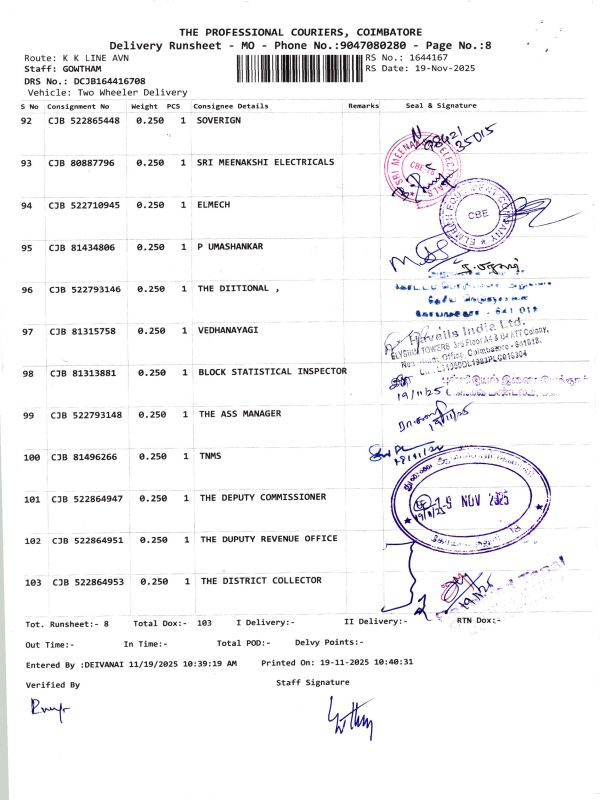 THE PROFESSIONAL COURIERS, COIMBATORE
Delivery Runsheet - MO - Phone No.:9047080280 - Page No.:8
Route: K K LINE AVN
RS No.: 1644167
Staff: GOWTHAM
RS Date: 19-Nov-2025
DRS No.: DCJB164416708
Vehicle: Two Wheeler Delivery
S No Consignment No Weight PCS Consignee Details Remarks Seal & Signature
92 CJB 522865448 0.250 1 SOVERIGN
98421
35015
93 CJB 80887796 0.250 1 SRI MEENAKSHI ELECTRICALS
SRI MEENAKSHI ELECTRICALS
CBE-18
94 CJB 522710945 0.250 1 ELMECH
ELMECH EQUIPMENT COMPANY
CBE
95 CJB 81434806 0.250 1 P UMASHANKAR
96 CJB 522793146 0.250 1 THE DIITIONAL ,
- 641 018
97 CJB 81315758 0.250 1 VEDHANAYAGI
Havells India Ltd.
ELYSIUM TOWERS 3rd Floor
Coimbatore - 641018.
98 CJB 81313881 0.250 1 BLOCK STATISTICAL INSPECTOR
19/11/25
99 CJB 522793148 0.250 1 THE ASS MANAGER
19/11/25
100 CJB 81496266 0.250 1 TNMS
101 CJB 522864947 0.250 1 THE DEPUTY COMMISSIONER
19 NOV 2025
19/11/25
102 CJB 522864951 0.250 1 THE DUPUTY REVENUE OFFICE
103 CJB 522864953 0.250 1 THE DISTRICT COLLECTOR
19/11/25
Tot. Runsheet:- 8 Total Dox:- 103 I Delivery:- II Delivery:- RTN Dox:-
Out Time:- In Time:- Total POD:- Delvy Points:-
Entered By :DEIVANAI 11/19/2025 10:39:19 AM Printed On: 19-11-2025 10:40:31
Verified By Staff Signature